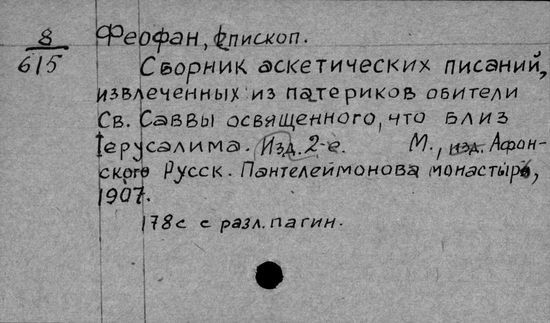 8
615
Феофан, епископ.
Сборник аскетических писаний,
извлеченных из патериков обители
Св. Саввы освященного, что близ
Iерусалима. Изд. 2-е. М., изд. Афон-
ского Русск. Пантелеймонова монастыря,
1907.
178с с разл. пагин.